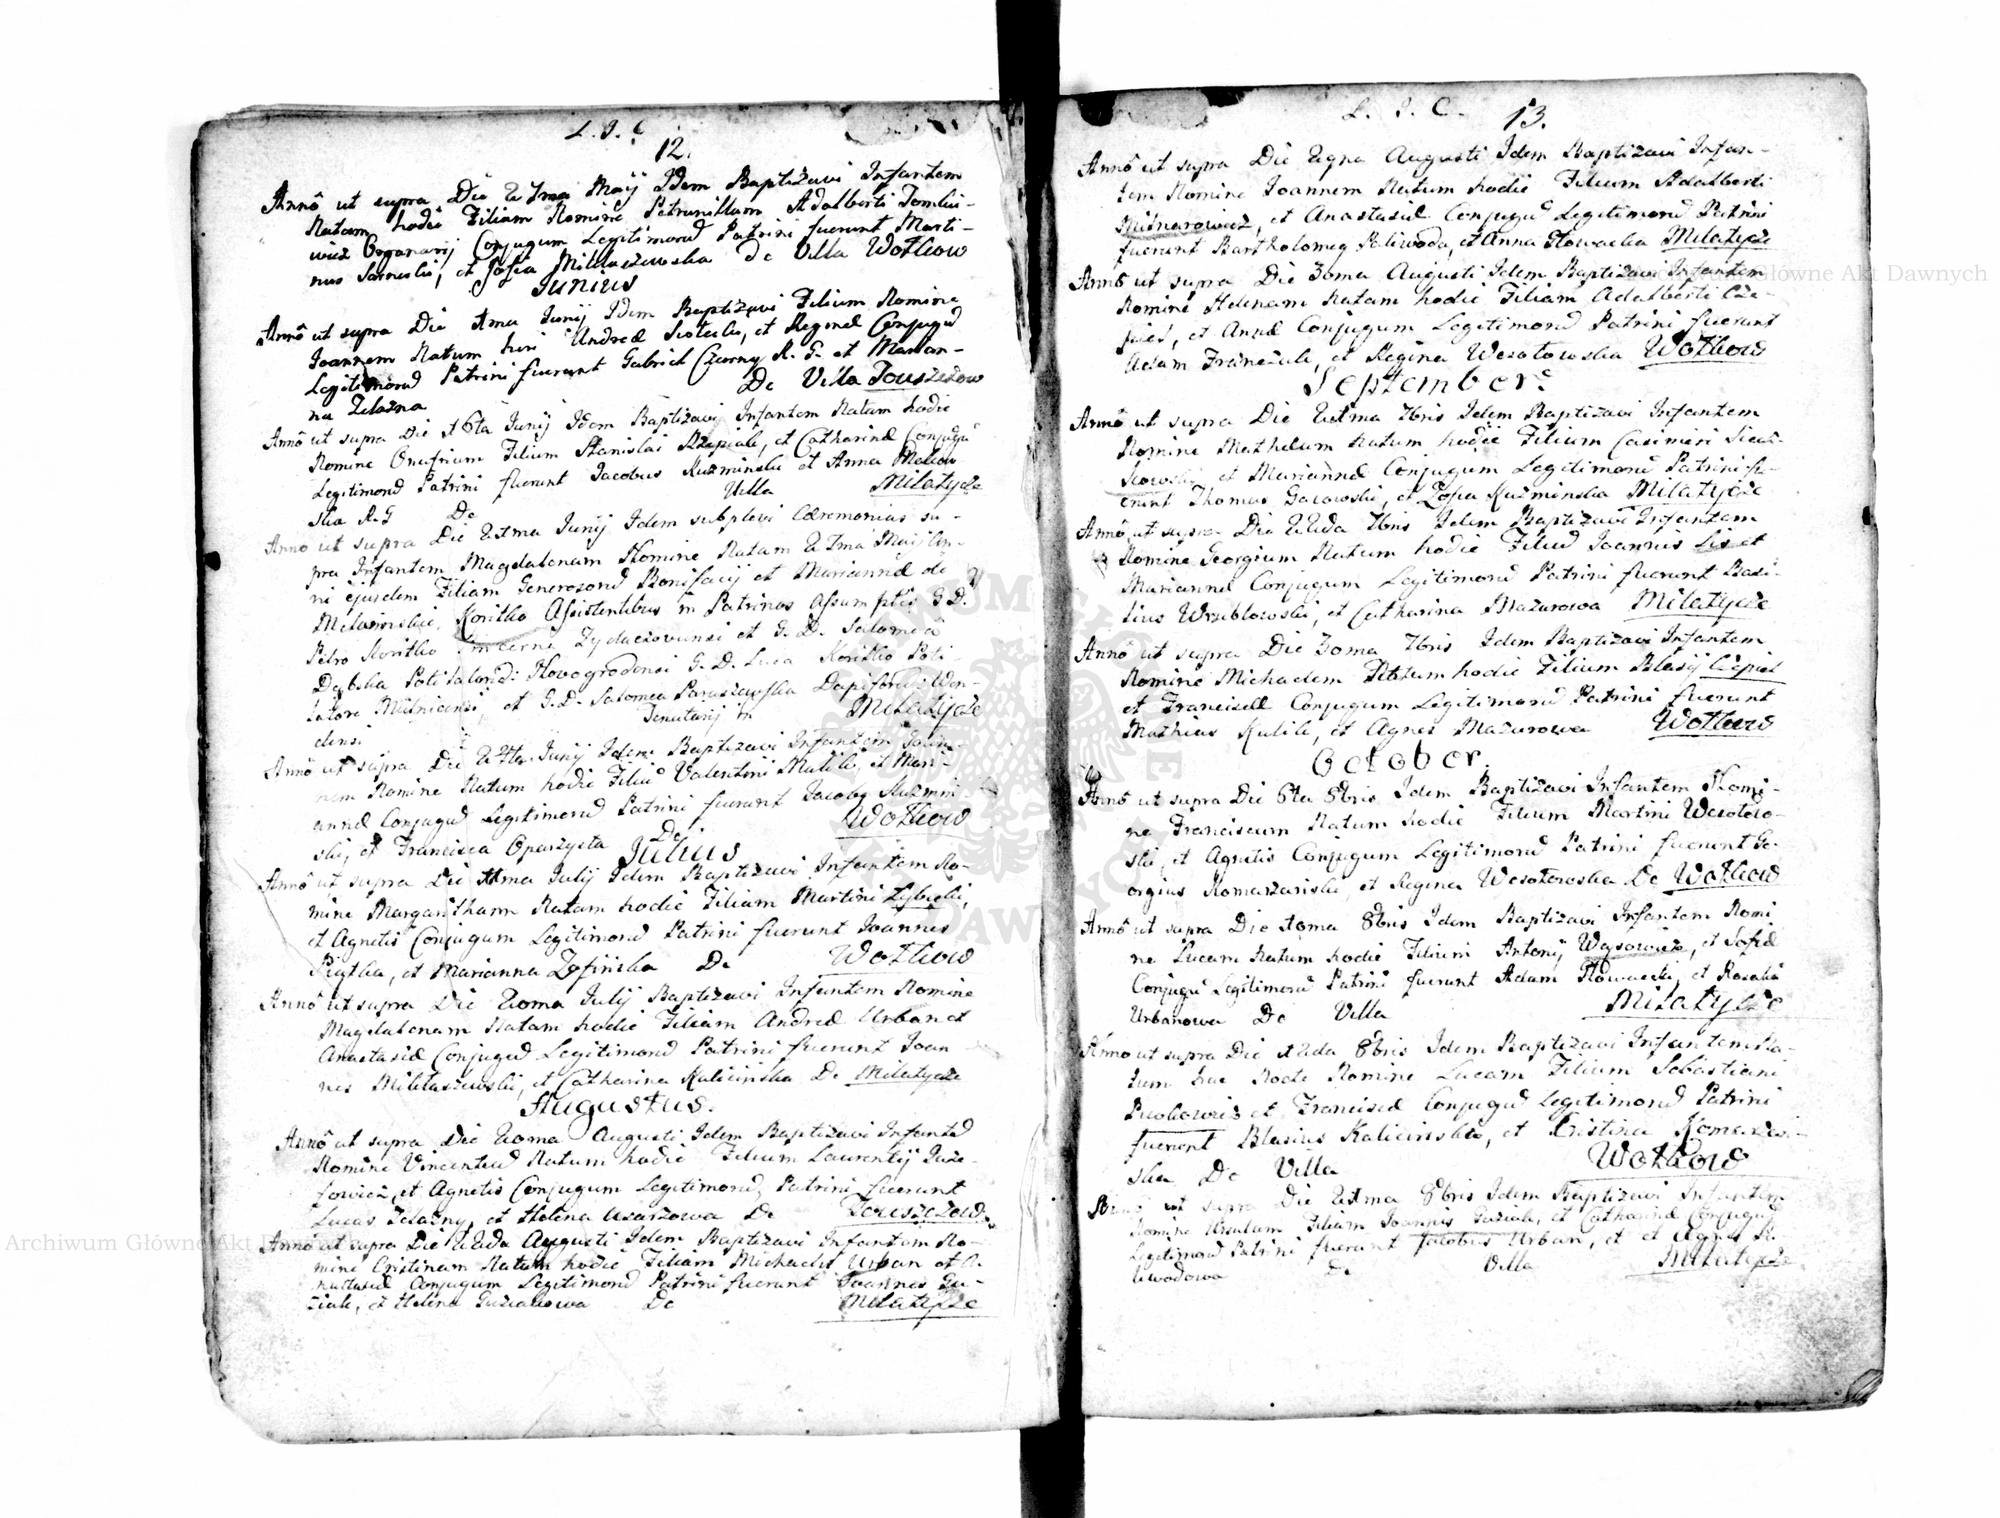 L. J. C
12.
Annô ut supra Die 27ma Maij Idem Baptizavi Infantem
Natam hodie Filiam Nomine Petrunillam Adalberti Tomkie-
wicz Organarij Conjugum Legitimorũ Patrini fuerunt Marti-
nus Sarnecki, et Zofia Mikłaszewska De Villa Wołkow
Junius
Annô ut supra Die 1ma Junij Idem Baptizavi Filium Nomine
Joannem Natum heri Andreæ et Reginæ Conjugũ
Legitimorũ Patrini fuerunt Gabriel Czerny R. G. et Marian-
na Zelazna De Villa Touszczow
Annô ut supra Die 16ta Junij Idem Baptizavi Infantem Natum hodie
Nomine Onufrium Filium Stanislai et Catharinæ Conjugũ
Legitimorũ Patrini fuerunt Jacobus Kuzminski et Anna
ska R. G De Villa Milatycze
Anno ut supra Die 21ma Junij Idem suplevi Cæremonias su-
pra Infantem Magdalenam Nomine Natam 27ma Maij An-
ni ejusdem Filiam Generosorũ Bonifacij et Mariannæ de
Koritko Assistentibus in Patrinos Assumptis G. D.
Petro Koritko et G. D. Salomea
Dębska Novogrodensi G. D. Luca Koritko
et G. D. Salomea Paruszewska Wen-
densi Tenutarij in Milatycze
Annô ut supra Die 24ta Junij Idem Baptizavi Infantem Joan-
nem Nomine Natum hodie Filiũ Valentini Kulik, et Mari-
annæ Conjugũ Legitimorũ Patrini fuerunt Jacobg Kuzmin-
ski, et Francisca Oparzysta De Wołkow
Julius
Annô ut supra Die 11ma Julij Idem Baptizavi Infantem No-
mine Margaritham Natam hodie Filiam Martini
et Agnetis Conjugum Legitimorũ Patrini fuerunt Joannes
Piątka, et Marianna Zyfińska De Wołkow
Annô ut supra Die 20ma Julij Baptizavi Infantem Nomine
Magdalenam Natam hodie Filiam Andreæ Urban et
Anastasiæ Conjugũ Legitimorũ Patrini fuerunt Joan
nes Mikłaszewski, et Catharina Kalicińska De Milatycze
Augustus.
Annô ut supra Die 20ma Augusti Idem Baptizavi Infantẽ
Nomine Vincentiũ Natum hodie Filium Laurentij Juze-
fowicz, et Agnetis Conjugum Legitimorũ, Patrini fuerunt
Lucas Zelazny, et Helena De Touszczow
Annô ut supra Die 22da Augusti Idem Baptizavi Infantem No-
mine Cristinam Natam hodie Filiam Michaelis Urban et A-
nastasiæ Conjugum Legitimorũ Patrini fuerunt Joannes Gu-
ziak, et Helena Guziakowa De Milatycze
L. J. C.
13.
Annô ut supra Die 29na Augusti Idem Baptizavi Infan-
tem Nomine Joannem Natum hodie Filium Adalberti
Młinarowicz, et Anastasiæ Conjugũ Legitimorũ Patrini
fuerunt Bartholomeg Paliwoda, et Anna Słowacka Milatycze
Annô ut supra Die 30ma Augusti Idem Baptizavi Infantem
Nomine Helenam Natam hodie Filiam Adalberti Cze-
piel, et Annæ Conjugum Legitimorũ Patrini fuerunt
Adam Franczak, et Regina Wesołowska Wołkow
September
Annô ut supra Die 21ma 7bris Idem Baptizavi Infantem
Nomine Matheum Natum hodie Filium Casimiri
et Mariannæ Conjugum Legitimorũ Patrini fu-
erunt Thomas Gacowski, et Zofia Kuzminska Milatycze
Annô ut supra Die 22da 7bris Idem Baptizavi Infantem
Nomine Georgium Natum hodie Filiũ Joannis Lis et
Mariannæ Conjugum Legitimorũ Patrini fuerunt Basi-
lius Wrublowski, et Catharina Mazurowa Milatycze
Annô ut supra Die 30ma 7bris Idem Baptizavi Infantem
Nomine Michaelem Natum hodie Filium Blasij Czepiel
et Franciscæ Conjugum Legitimorũ Patrini fuerunt
Mathias Kulik, et Agnes Mazurowa Wołkow
October.
Annô ut supra Die 6ta 8bris Idem Baptizavi Infantem Nomi-
ne Franciscum Natum hodie Filium Martini Wesołow-
ski, et Agnetis Conjugum Legitimorũ Patrini fuerunt Ge-
orgius Komarzański, et Regina Wesołowska De Wołkow
Annô ut supra Die 10ma 8bris Idem Baptizavi Infantem Nomi
ne Lucam Natum hodie Filium Antonij Wąsowicz, et Sofiæ
Conjugũ Legitimorũ Patrini fuerunt Adam Słowacki, et Rosalia
Urbanowa De Villa Milatycze
Anno ut supra Die 12da 8bris Idem Baptizavi Infantem Na-
tum hac Nocte Nomine Lucam Filium Sebastiani
et Franciscæ Conjugũ Legitimorũ Patrini
fuerunt Blasius Kaliciński, et Cristina Komarzań-
ska De Villa Wołkow
Annô ut supra Die 21ma 8bris Idem Baptizavi Infantem
Nomine Ursulam Filiam Joannis Guziak, et Catharinæ Conjugũ
Legitimorũ Patrini fuerunt Jacobus Urban, et et Agnes
De Villa Milatycze
Archiwum Główne Akt Dawnych
Archiwum Główne Akt Dawnych
ARCHIWUM GŁÓWNE AKT DAWNYCH